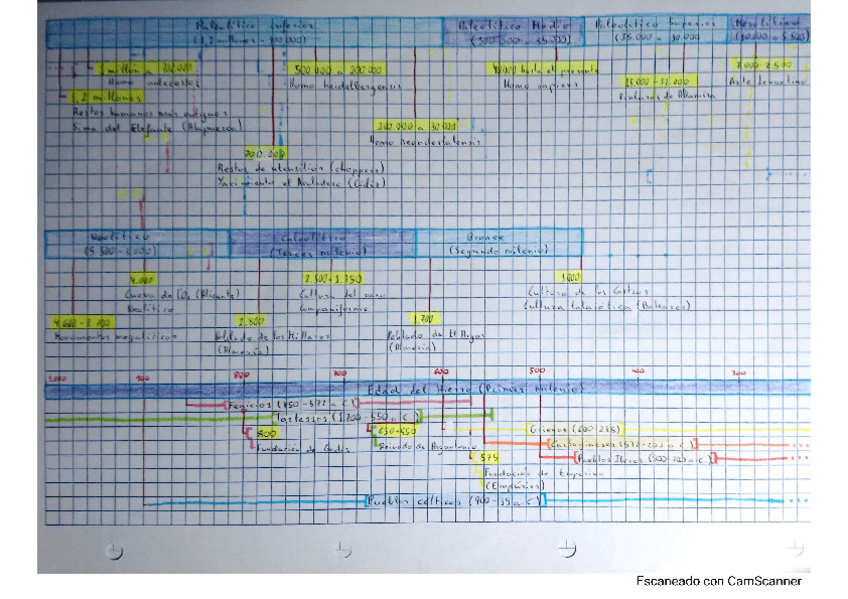 Paleolítico inferior
(1,2 millones - 300.000)
Paleolítico Medio
(300.000 - 35.000)
Paleolítico Superior
(35.000 - 10.000)
Mesolítico
(10.000 - 5.500)
1 millón a 700.000
Homo antecessor
500.000 a 200.000
Homo heidelbergensis
40.000 hasta el presente
Homo sapiens
Pinturas de Altamira
7.000 - 2.500
Arte levantino
1,2 millones
Restos humanos más antiguos
Sima del Elefante (Atapuerca)
a 30.000
Homo neanderthalensis
700.000
Restos de utensilios (choppers)
Yacimiento el Aculadero (Cádiz)
Neolítico
(5.500 - 3.000)
Calcolítico
(Tercer milenio)
Bronce
(Segundo milenio)
4.000
Cueva de l'Or (Alicante)
Neolítico
Cultura del vaso
Campaniforme
1.000
Cultura de los Castros
Cultura talaiótica (Baleares)
Monumentos megalíticos
2.800
Poblado de los Millares
(Almería)
1.700
Poblado de El Argar
(Almería)
1.000 900 800 700 600 500 400 300
Edad del Hierro (Primer milenio)
Fenicios (750 - 573 a.C.)
Tartessos (1.200 - 550 a.C.)
800
Fundación de Gadir
630-550
Reinado de Argantonio
Griegos
Cartagineses
575
Pueblos Íberos
Fundación de Emporion
(Empúries)
Pueblos célticos
Escaneado con CamScanner